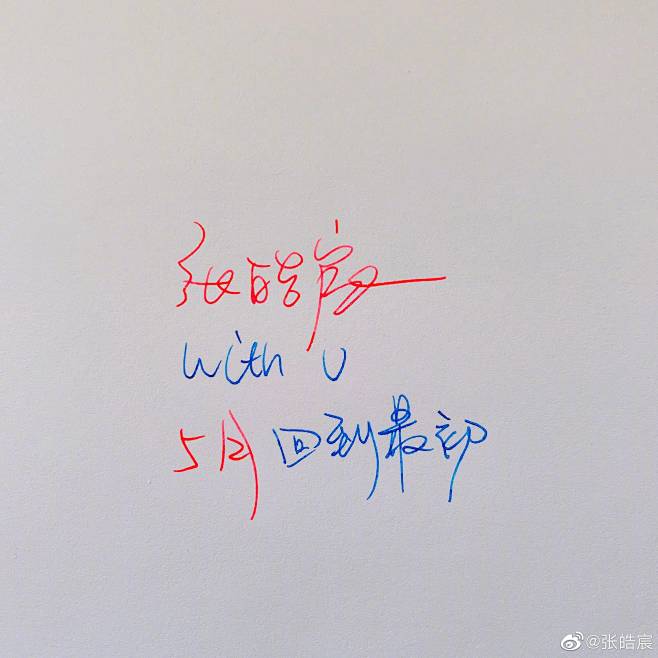 张皓宸
with u
5月回到最初
@张皓宸